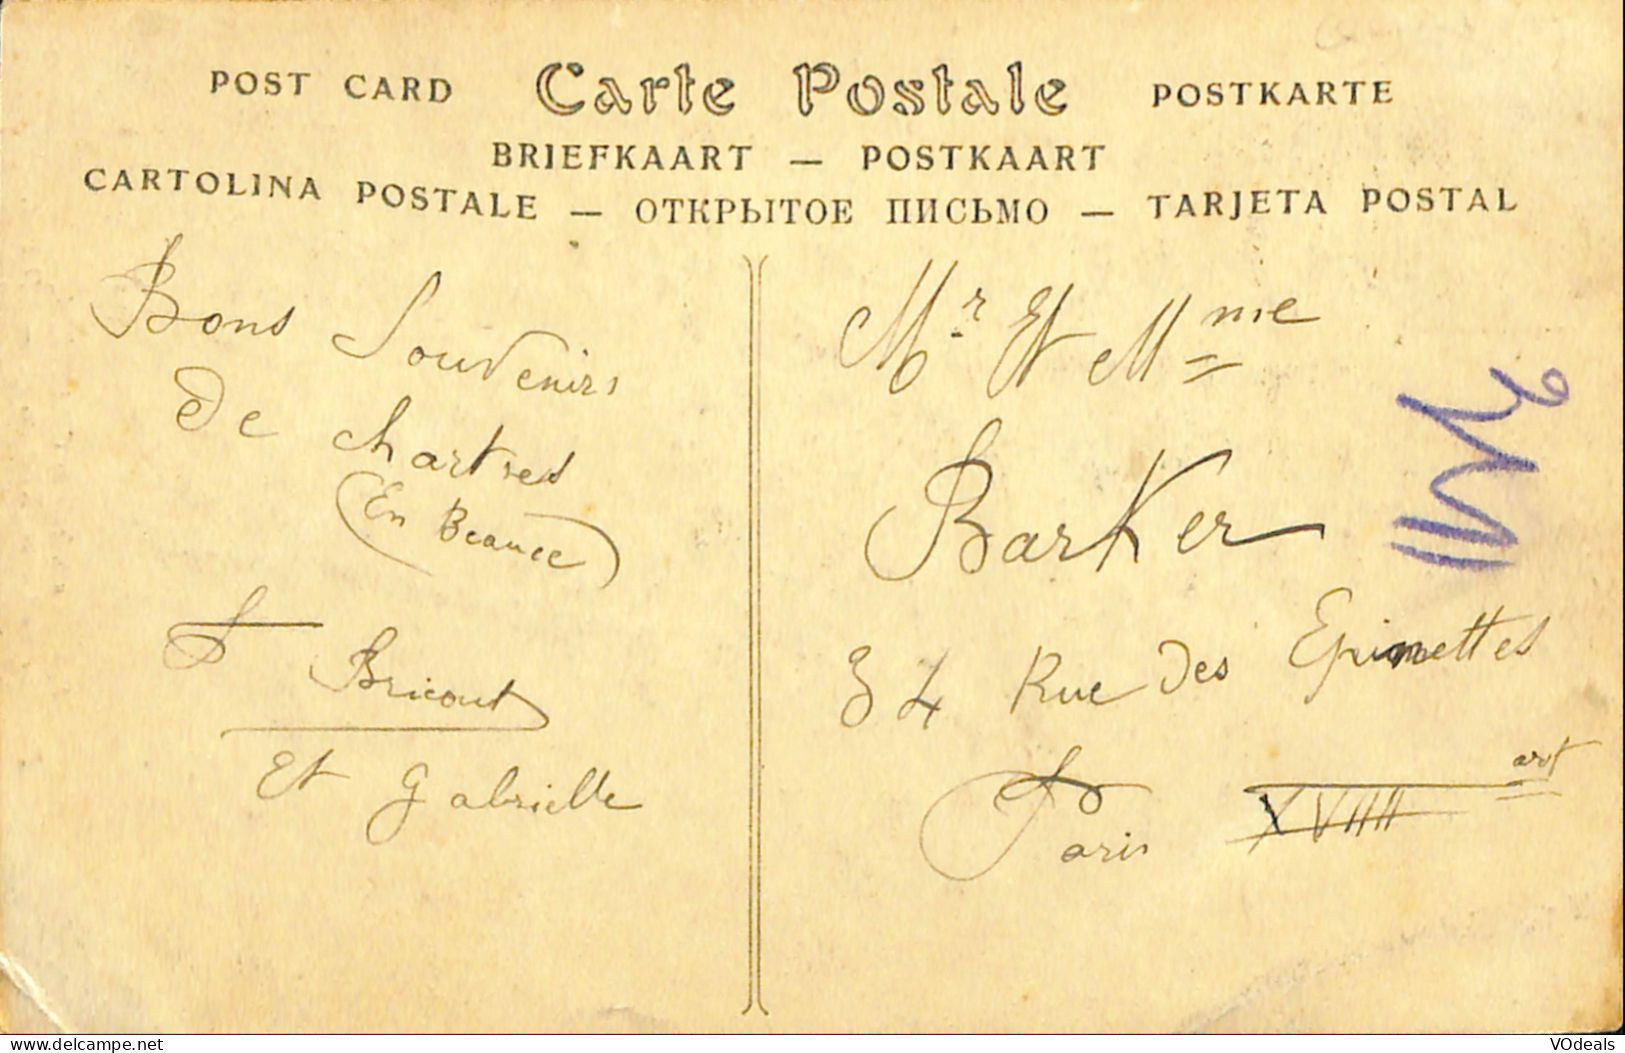 POST CARD Carte Postale POSTKARTE
BRIEFKAART — POSTKAART
CARTOLINA POSTALE — ОТКРЫТОЕ ПИСЬМО — TARJETA POSTAL
Bons Souvenirs
De Chartres
(En Beauce)
Bricout
Et Gabrielle
Mr Et Mme
Barker
34 Rue Des Epinettes
Paris XVIII art
www.delcampe.net
VOdeals